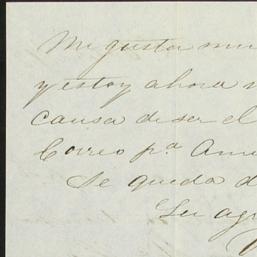 Me gusta mu
y estoy ahora
causa de ser el
Correo pa Ame
Se queda d
Su ag